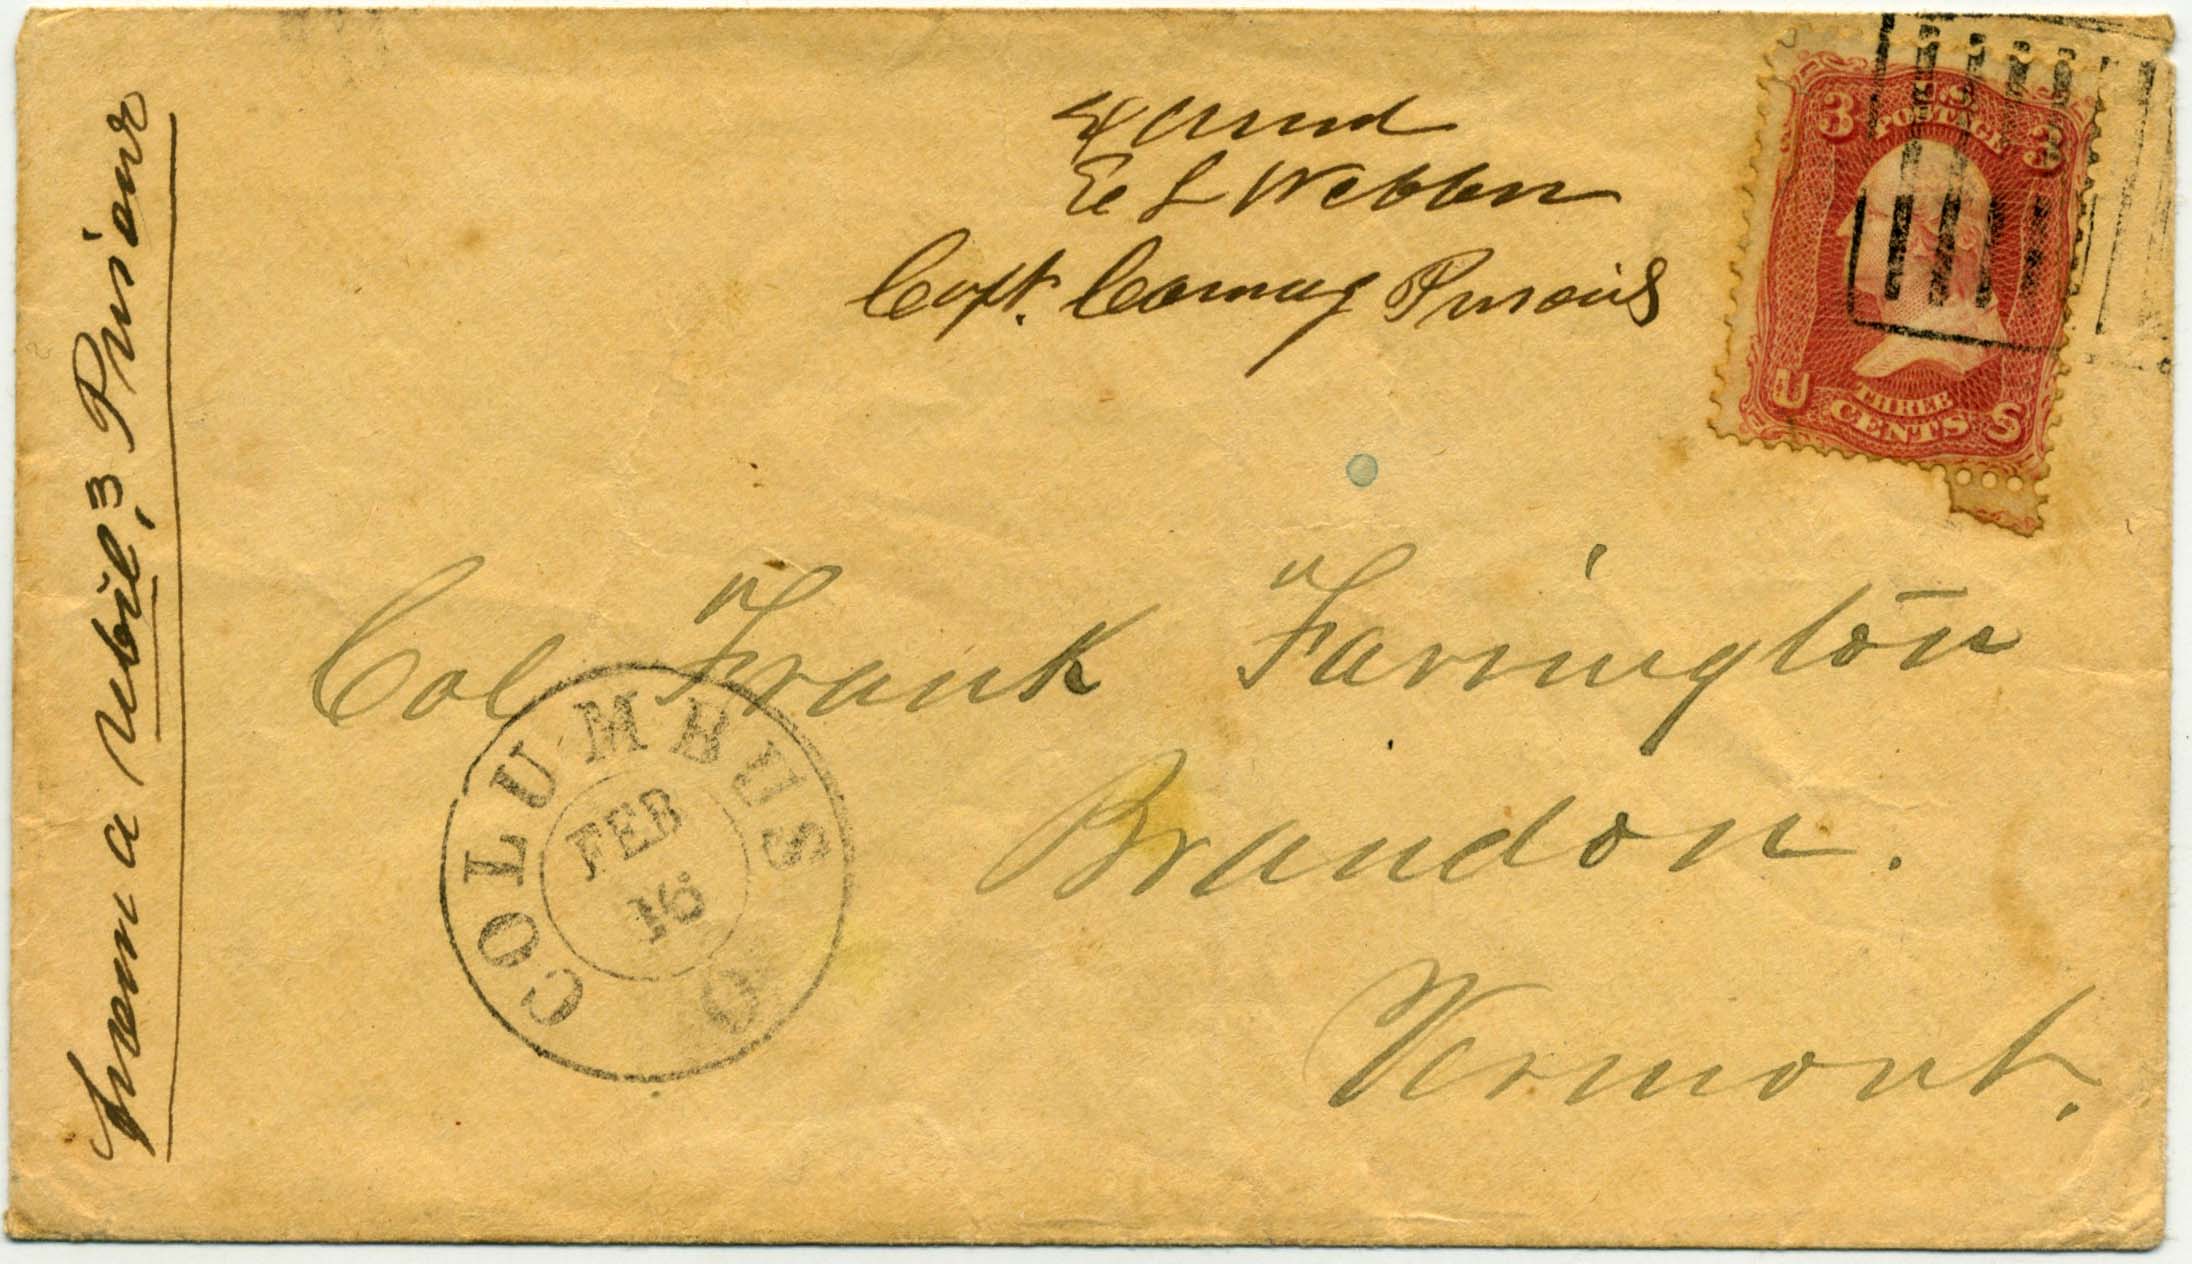 Exmd
E L Webber
Capt. Comdg Prisons
3 U.S. POSTAGE 3
U THREE S
CENTS
Col Frank Farrington
Brandon.
Vermont.
COLUMBUS O
FEB
16
From a Rebil, Prisoner